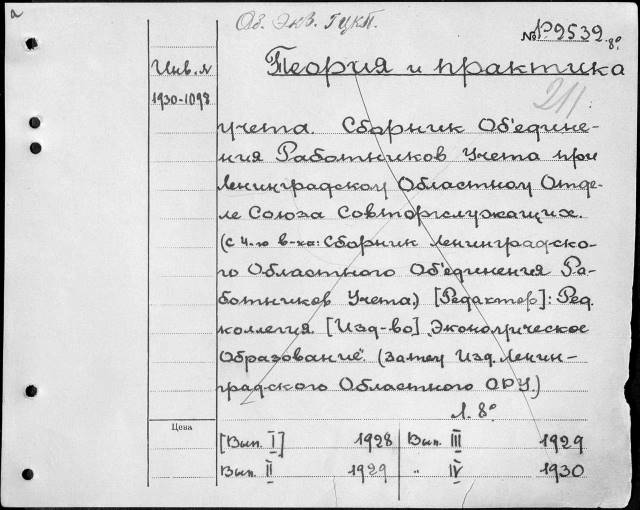 a
Об. Экв. Гукп.
№ Р.9539. 8º
Инв. №
1930-1098
Теория и практика
211
учета. Сборник Об'едине-
ния Работников Учета при
Ленинградском Областном Отде-
ле Союза Совторгслужащих.
(с 4-го в-ка: Сборник Ленинградско-
го Областного Об'единения Ра-
ботников Учета.) [Редактор]: Ред.
коллегия. [Изд-во] „Экономическое
Образование". (Затем Изд. Ленин-
градского Областного ОРУ.)
Л. 8º
Цена
[Вып. I] 1928 Вып. III 1929
Вып. II 1929 " IV 1930